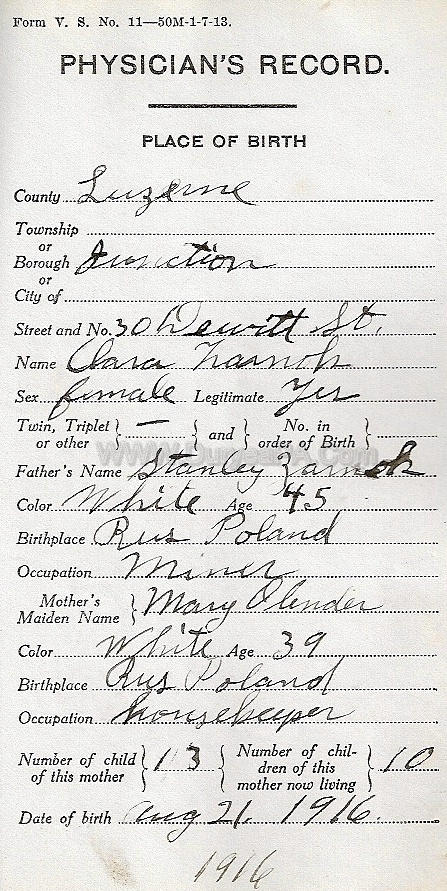 Form V. S. No. 11—50M-1-7-13.
PHYSICIAN'S RECORD.
PLACE OF BIRTH
County Luzerne
Township
or
Borough Junction
or
City of
Street and No. 30 Dewitt St.
Name Clara
Sex female Legitimate Yes
Twin, Triplet or other } — { and } No. in order of Birth {
Father's Name Stanley
Color White Age 45
Birthplace Rus Poland
Occupation Miner
Mother's Maiden Name } Mary Olender
Color White Age 39
Birthplace Rus Poland
Occupation housekeeper
Number of child of this mother { 13 { Number of children of this mother now living { 10
Date of birth Aug 21, 1916.
1916